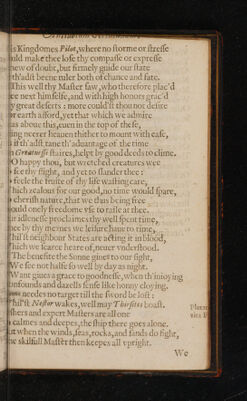 is Kingdomes Pilot, where no storme or stresse
ould make thee lose thy compasse or expresse
hew of doubt, but firmely guide our state
th'adst beene ruler both of chance and fate.
This well thy Master saw, who therefore plac'd
ee next himselfe, and with high honors grac'd
y great deserts: more could'st thou not desire
or earth afford, yet that which we admire
as aboue this, euen in the top of these,
ing neerer heauen thither to mount with ease,
th'adst tane th'aduantage of the time
staires, helpt by good deeds to clime.
O happy thou, but wretched creatures wee
see thy flight, and yet to slander thee:
feele the fruite of thy life wasting care,
hich zealous for our good, no time would spare,
cherish nature, that we thus being free
ould onely freedome vse to raile at thee.
ur idlenesse proclaimes thy well spent time,
ee by thy meanes we leisure haue to rime,
hil'st neighbour States are acting it in blood,
hich we scarce heare of, neuer vnderstood.
The benefite the Sonne giues to our sight,
We see not halfe so well by day as night.
Want giues a grace to goodnesse, when th'inioying
onfounds and dazells sense like honny cloying.
needes no target till the sword be lost:
hil'st Nestor wakes, well may Thersites boast.
shers and expert Masters are all one
calmes and deepes, the ship there goes alone.
ut when the winds, seas, rocks, and sands do fight,
he skilfull Master then keepes all vpright.
We